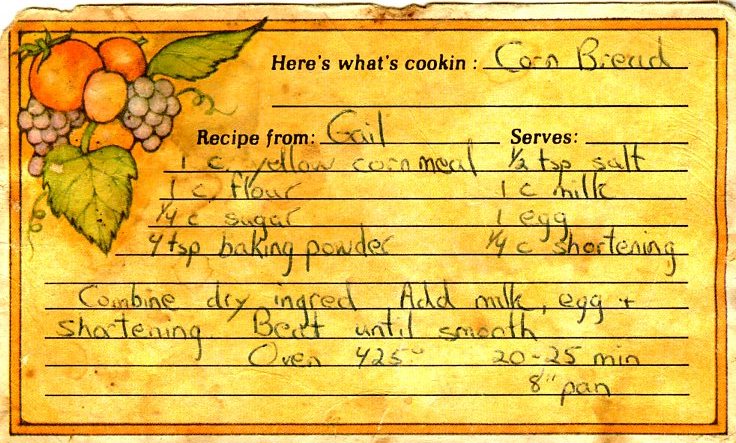 Here's what's cookin : Corn Bread
Recipe from: Gail Serves:
1 c. yellow cornmeal ½ tsp salt
1 c flour 1 c milk
¼ c sugar 1 egg
4 tsp baking powder ¼ c shortening
Combine dry ingred Add milk, egg +
shortening. Beat until smooth
Oven 425° 20-25 min
8" pan